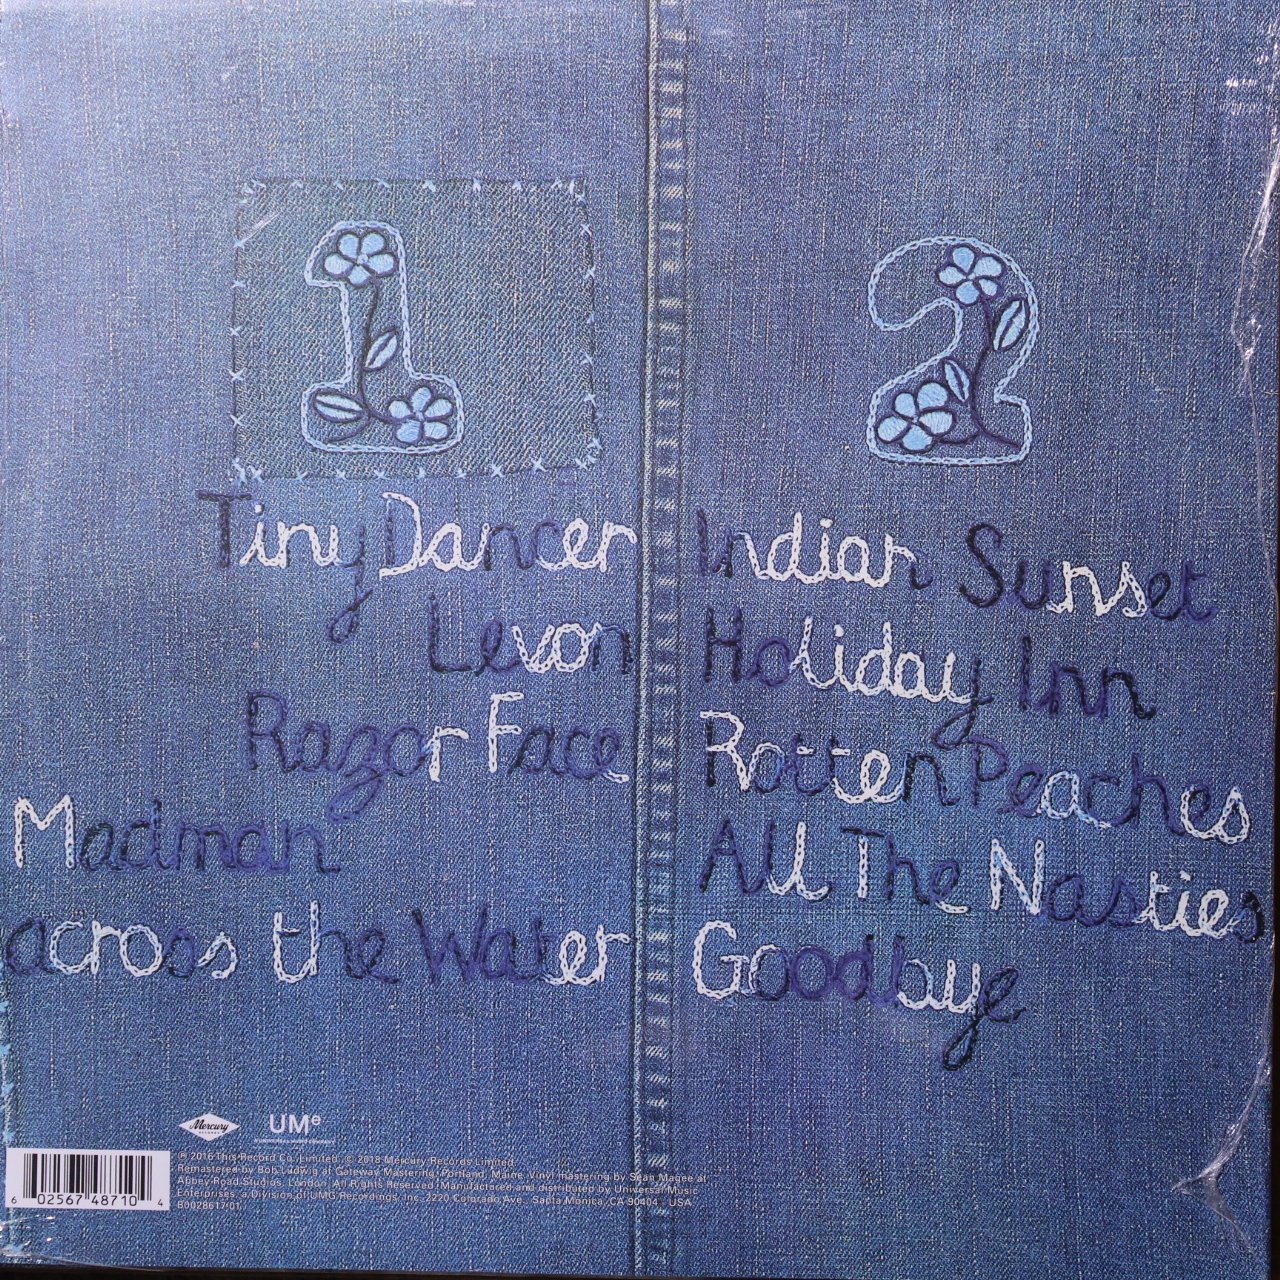 1
Tiny Dancer
Levon
Razor Face
Madman
across the Water
2
Indian Sunset
Holiday Inn
Rotten Peaches
All The Nasties
Goodbye
Mercury
RECORDS
UMe
℗ 2016 This Record Co. Limited. © 2018 Mercury Records Limited.
Remastered by Bob Ludwig at Gateway Mastering, Portland, Maine. Vinyl mastering by Sean Magee at
Abbey Road Studios, London. All Rights Reserved. Manufactured and distributed by Universal Music
Enterprises, a Division of UMG Recordings, Inc., 2220 Colorado Ave., Santa Monica, CA 90404 - USA
B0028617-01
6 02567 48710 4